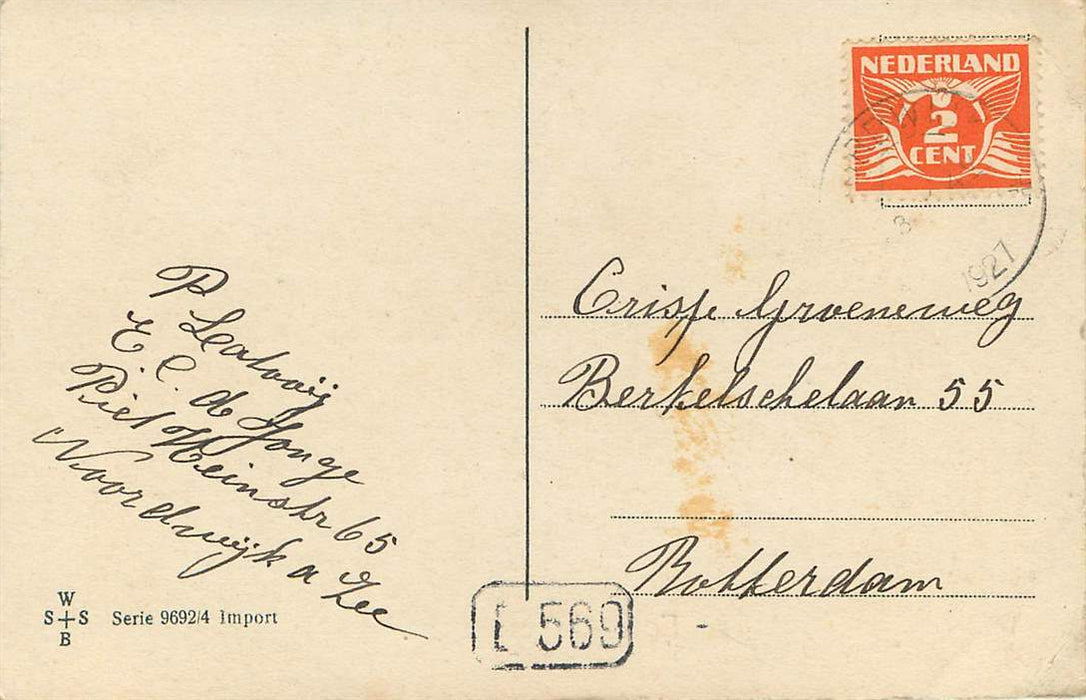 NEDERLAND
2
CENT
1927
P
E. C. de Jonge
Piet Heinstr 65
Noordwijk a Zee
Crisje Groeneweg
Berkelschelaan 55
Rotterdam
W
S S
B
Serie 9692/4 Import
L 569